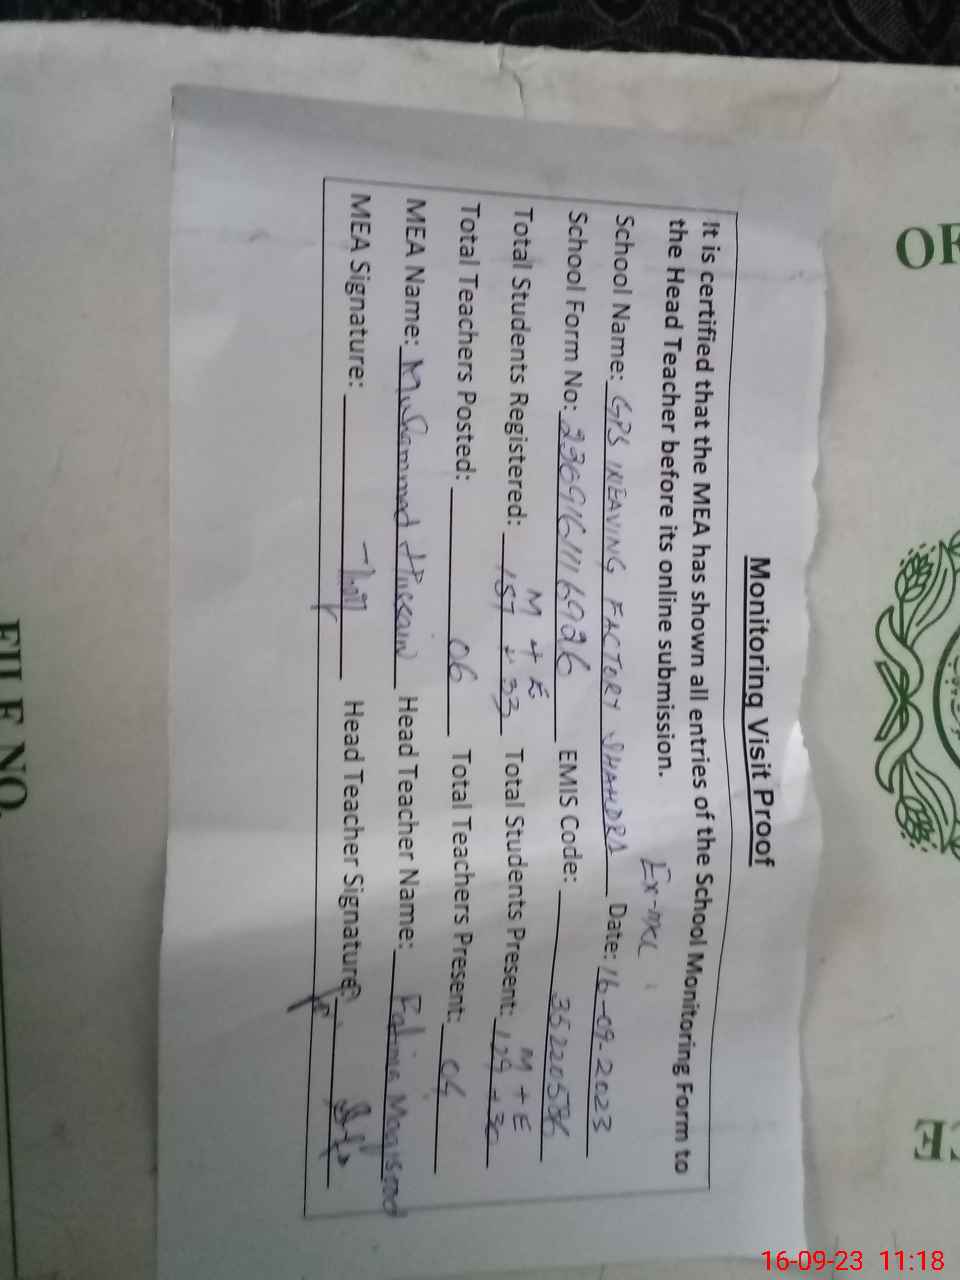 Monitoring Visit Proof
It is certified that the MEA has shown all entries of the School Monitoring Form to
the Head Teacher before its online submission.
Ex-MCL
School Name: GPS WEAVING FACTORY SHAHDRA Date: 16-09-2023
School Form No: EMIS Code: 35220586
M + E M + E
Total Students Registered: 157 + 33 Total Students Present: 129 +
Total Teachers Posted: 06 Total Teachers Present:
MEA Name: Muhammad Hussain Head Teacher Name: Fatima
MEA Signature: Head Teacher Signature:
OF
FILE NO.
16-09-23 11:18